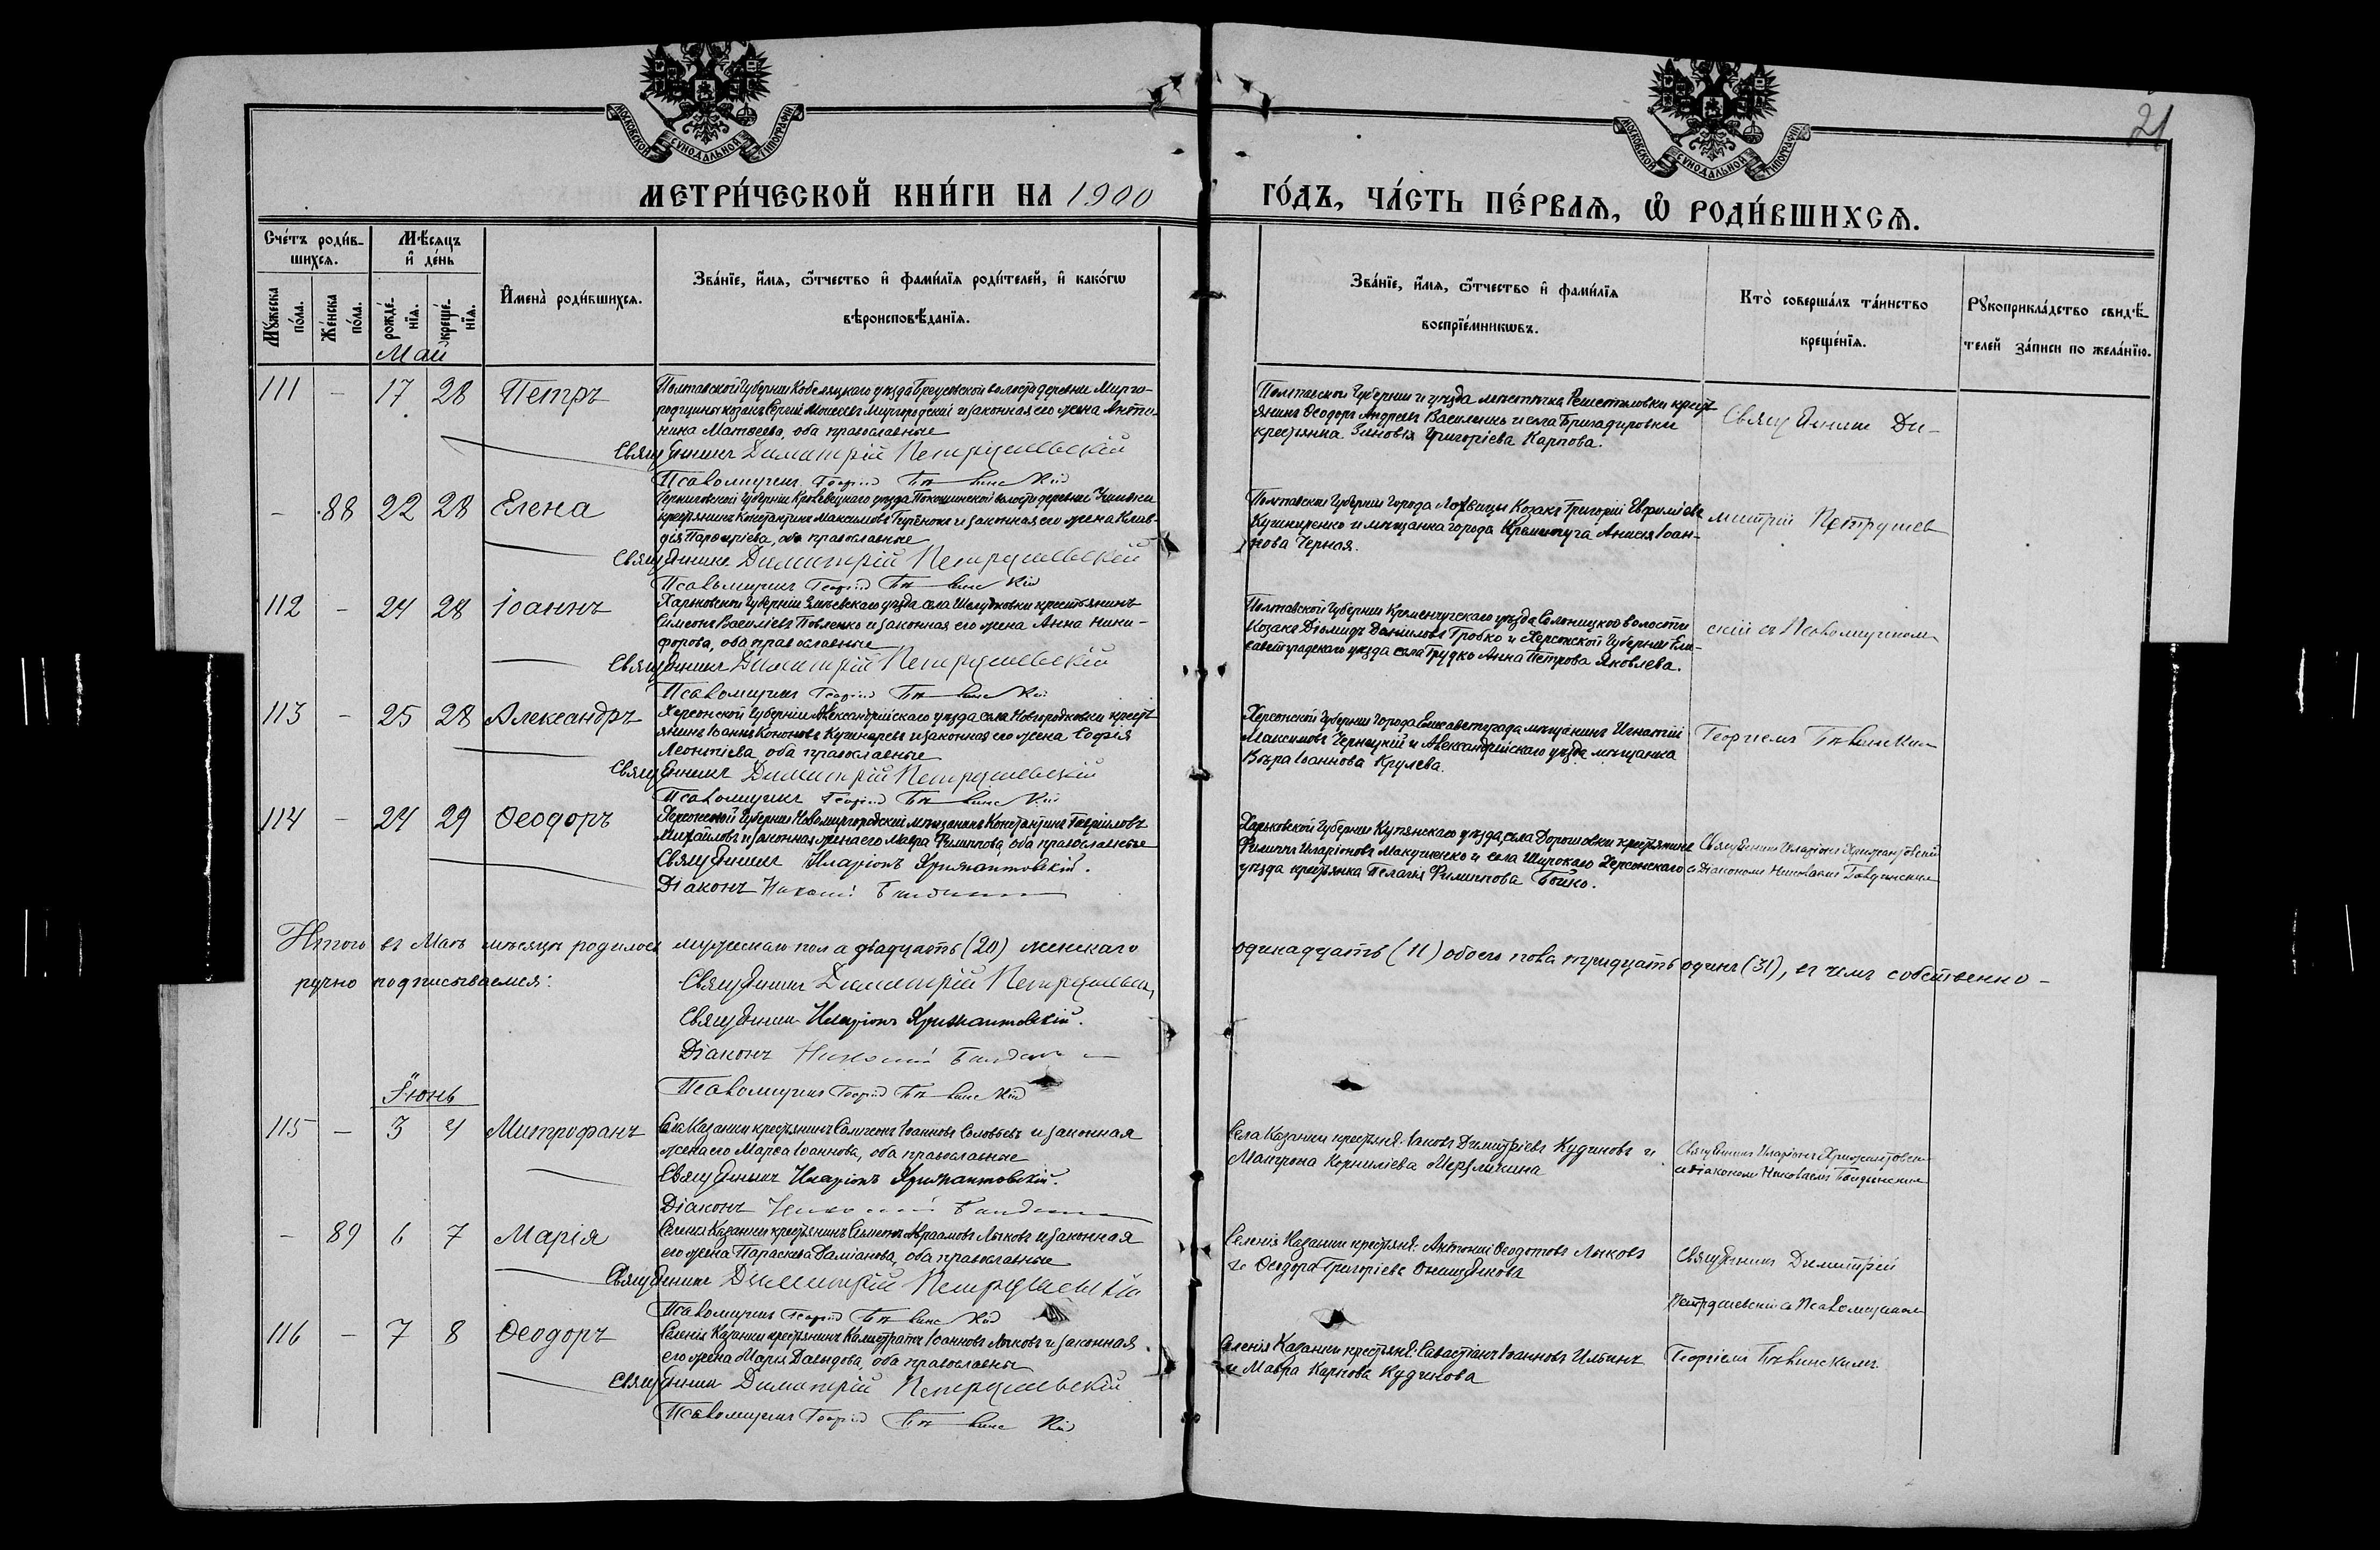 МОСКОВСКОЙ СѴНОДАЛЬНОЙ ТИПОГРАФІИ
МОСКОВСКОЙ СѴНОДАЛЬНОЙ ТИПОГРАФІИ
21
МЕТРИ́ЧЕСКОЙ КНИ́ГИ НА 1900
ГО́ДЪ, ЧА́СТЬ ПЕ́РВАЯ, Ѡ РОДИ́ВШИХСЯ.
Сче́тъ роди́в-
шихся.
Мꙋ́жеска по́ла.
Же́нска по́ла.
Мѣ́сяцъ
и҆ де́нь
рожде́-
нїя.
креще́-
нїя.
И҆мена̀ роди́вшихся.
Зва́нїе, и҆́мя, ѻ҆́тчество и҆ фами́лїя роди́телей, и҆ како́гѡ
вѣроисповѣ́данїя.
Зва́нїе, и҆́мя, ѻ҆́тчество и҆ фами́лїя
воспрїе́мникѡвъ.
Кто̀ соверша́лъ та́инство
креще́нїя.
Рꙋкоприкла́дство свидѣ́-
телей за́писи по жела́нїю.
Май
111 - 17 28 Петръ
Полтавской Губерніи Кобелякскаго уѣзда Бреусовской волости деревни Мирго-
родщины козакъ Сергій Моисеевъ Миргородскій и законная его жена Анто-
нина Матѳеева, оба православные
Священникъ Димитрій Петрушевскій
Псаломщикъ Георгій
Полтавской Губерніи и уѣзда мѣстечка Решетиловки крест-
янинъ Ѳеодоръ Андреевъ Василенко и села Бригадировки
крестьянка Зиновія Григоріева Карпова.
Священник Ди-
- 88 22 28 Елена
Черниговской Губерніи Кролевецкаго уѣзда Понорницкой волости деревни
крестьянинъ Константинъ Максимовъ и законная его жена Клав-
дія Порфиріева, оба православные
Священникъ Димитрій Петрушевскій
Псаломщикъ Георгій
Полтавской Губерніи Города Лохвицы Козакъ Григорій Евфиміевъ
Кушниренко и мѣщанка города Кременчуга Анисія Іоан-
нова Черная.
митрій Петрушев
112 - 24 28 Іоаннъ
Харьковской Губерніи Зміевскаго уѣзда села Шелудковки крестьянинъ
Симеонъ Василіевъ Павленко и законная его жена Анна Ники-
форова, оба православные
Священникъ Димитрій Петрушевскій
Псаломщикъ Георгій
Полтавской Губерніи Кременчугскаго уѣзда волости
Козакъ Діомидъ Даніиловъ Гробко и Херсонской Губерніи Ели-
саветградскаго уѣзда села Грузко Анна Петрова Яковлева.
скій съ Псаломщиком
113 - 25 28 Александръ
Херсонской Губерніи Александрійскаго уѣзда села Новгородковки крест-
янинъ Іоаннъ Кононовъ Кушнаревъ и законная его жена Софія
Леонтіева, оба православные
Священникъ Димитрій Петрушевскій
Псаломщикъ Георгій
Херсонской Губерніи Города Елисаветграда мѣщанинъ Игнатій
Максимовъ Чернецкій и Александрійскаго уѣзда мѣщанка
Вѣра Іоаннова Крулева.
Георгіемъ
114 - 24 29 Ѳеодоръ
Херсонской Губерніи Новомиргородскій мѣщанинъ Константинъ Гавріиловъ
Михайловъ и законная жена его Мавра Филиппова, оба православные
Священникъ Иларіонъ Хрисантовскій.
Діаконъ Николай
Харьковской Губерніи Купянскаго уѣзда, села Дорошовки крестьянинъ
Филиппъ Иларіоновъ Макушенко и села Широкаго Херсонскаго
уѣзда крестьянка Пелагія Филиппова Бойко.
Священникъ Иларіонъ Хрисантовскій
съ Діакономъ Николаемъ
Итого въ Маѣ мѣсяцѣ родилось мужескаго пола двадцать (20) женскаго
одинадцать (11) обоего пола тридцать одинъ (31), въ чемъ собственно-
ручно подписываемся:
Священникъ Димитрій
Священникъ Иларіонъ Хрисантовскій.
Діаконъ Николай
Псаломщикъ Георгій
Іюнь
115 - 3 4 Митрофанъ
Села Казанки крестьянинъ Сампсонъ Іоанновъ Соловьевъ и законная
жена его Марѳа Іоаннова, оба православные
Священникъ Иларіонъ Хрисантовскій.
Діаконъ
Села Казанки крестьян. Іаковъ Димитріевъ Кудиновъ и
Матрона Корниліева
Священникъ Иларіонъ
съ Діакономъ Николаемъ
- 89 6 7 Марія
Селенія Казанки крестьянинъ Симеонъ Авраамовъ Лыковъ и законная
его жена Параскева Даміанова, оба православные
Священникъ Димитрій Петрушевскій
Псаломщикъ Георгій
Селенія Казанки крестьян. Антоній Ѳеодотовъ Лыковъ
и Ѳеодора Григоріева Онищенкова
Священникъ Димитрій
Петрушевскій съ Псаломщиком
116 - 7 8 Ѳеодоръ
Селенія Казанки крестьянинъ Калистратъ Іоанновъ Лыковъ и законная
его жена Марія Давыдова, оба православные
Священникъ Димитрій Петрушевскій
Псаломщикъ Георгій
Селенія Казанки крестьян. Севастіанъ Іоанновъ Ильинъ
и Мавра Карпова Кудинова
Георгіемъ